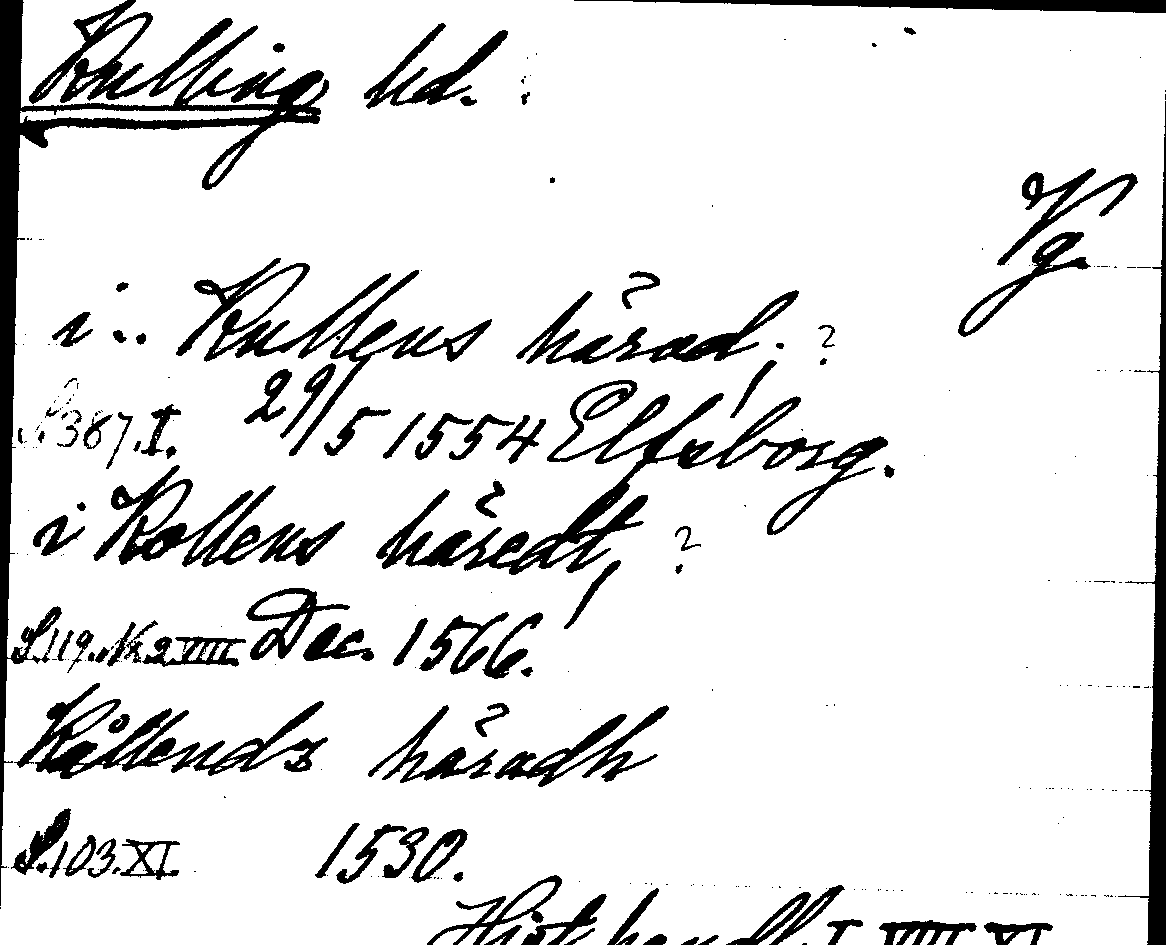 Kulling hd.
Vg.
i.. Kullens härad, ?
S.387.I. 29/5 1554 Elfsborg.
i Kollens häredt, ?
S.119.Nr.2.VIII. Dec. 1566.
Kållendz häradh
S.103.XI. 1530.
Hist. handl. I VIII XI